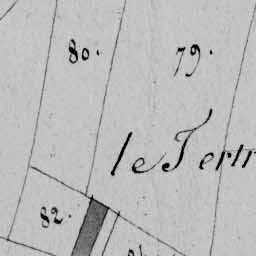 80. 79.
le Tertr
82.